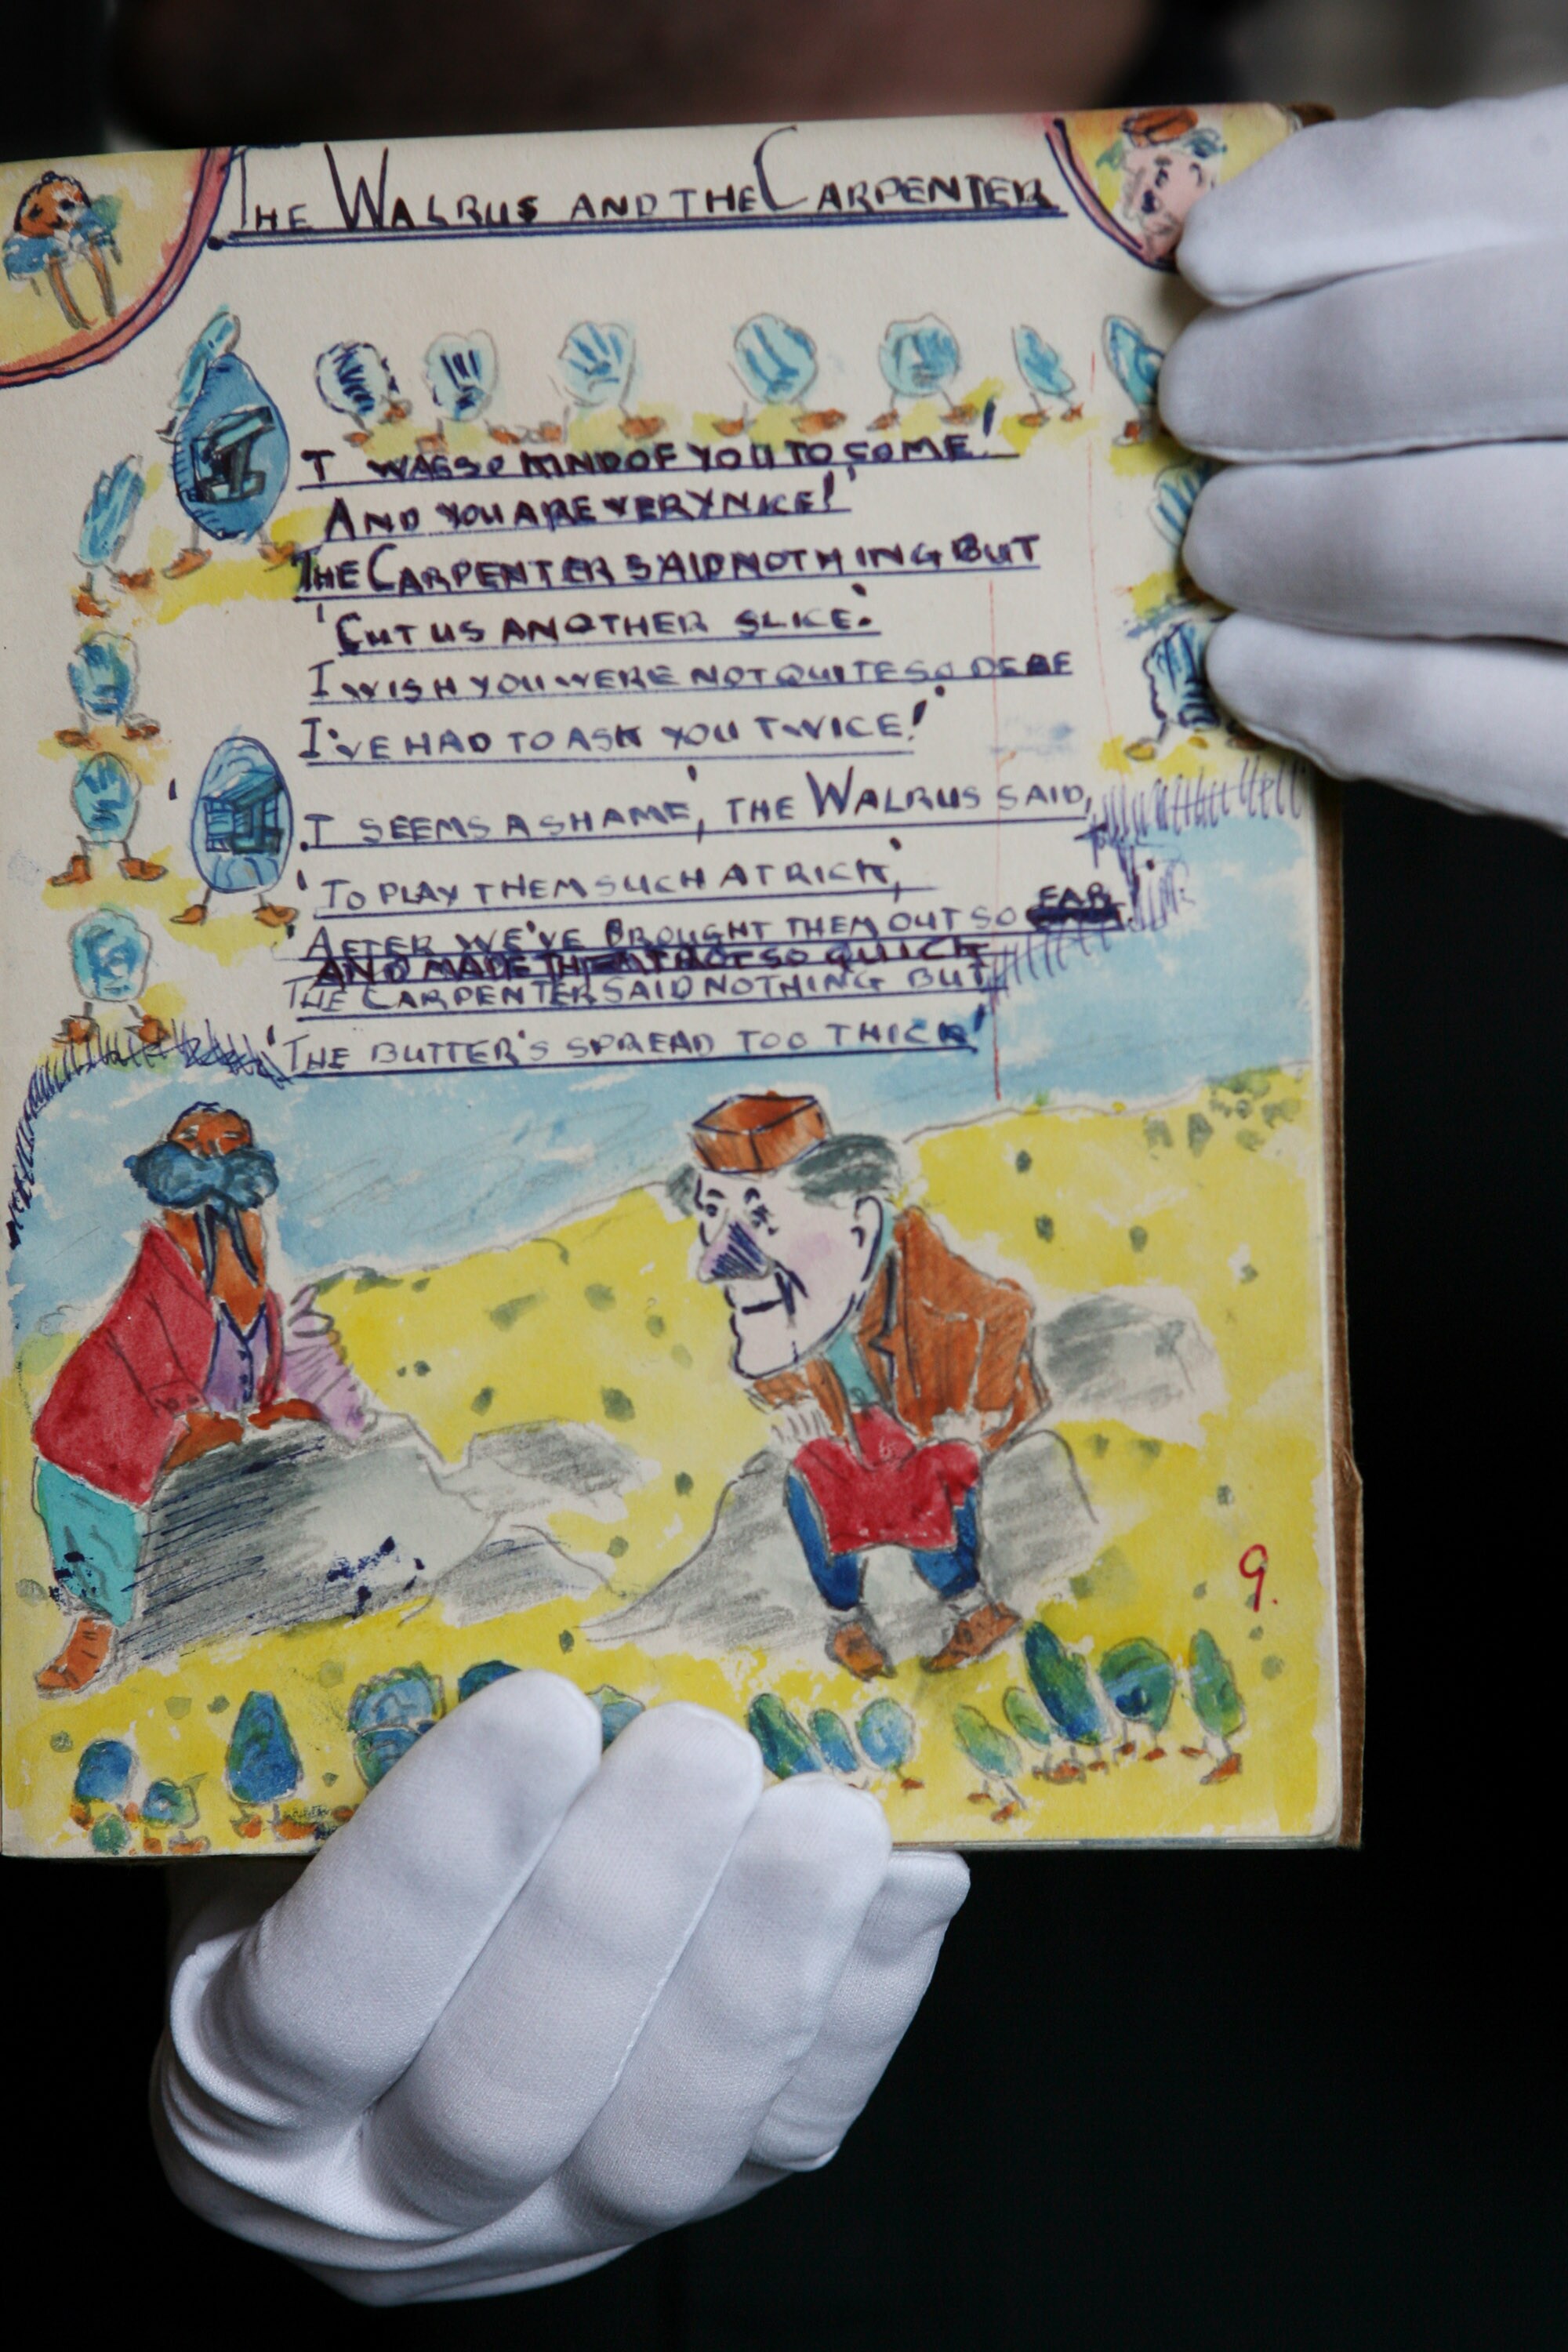 THE WALRUS AND THE CARPENTER
IT WAS SO KIND OF YOU TO COME!
AND YOU ARE VERY NICE!'
THE CARPENTER SAID NOTHING BUT
'CUT US ANOTHER SLICE.
I WISH YOU WERE NOT QUITE SO DEAF
I'VE HAD TO ASK YOU TWICE!'
'IT SEEMS A SHAME', THE WALRUS SAID,
'TO PLAY THEM SUCH A TRICK,
'AFTER WE'VE BROUGHT THEM OUT SO FAR
AND MADE THEM TROT SO QUICK
THE CARPENTER SAID NOTHING BUT
'THE BUTTER'S SPREAD TOO THICK'
9.